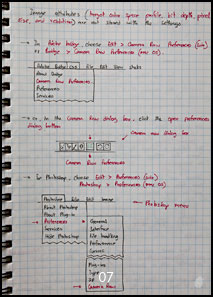 Image attributes (target color space profile, bit depth, pixel
size, and resolution) are not stored with the settings.
→ In Adobe Bridge, choose Edit > Camera Raw Preferences (win)
or Bridge > Camera Raw Preferences (mac OS)
Adobe Bridge CS5 File Edit View Stacks
About Bridge
Camera Raw Preferences
Preferences
Services
→ or in the Camera Raw dialog box, click the open preferences
dialog button
Camera Raw dialog box
Camera Raw Preferences
→ In Photoshop, choose Edit > Preferences (win)
Photoshop > Preferences (mac OS)
Photoshop File Edit Image
Photoshop menu
About Photoshop
About Plug-in
Preferences > General
Services Interface
Hide Photoshop File Handling
Performance
Cursors
Plug-ins
Type
07
Camera Raw